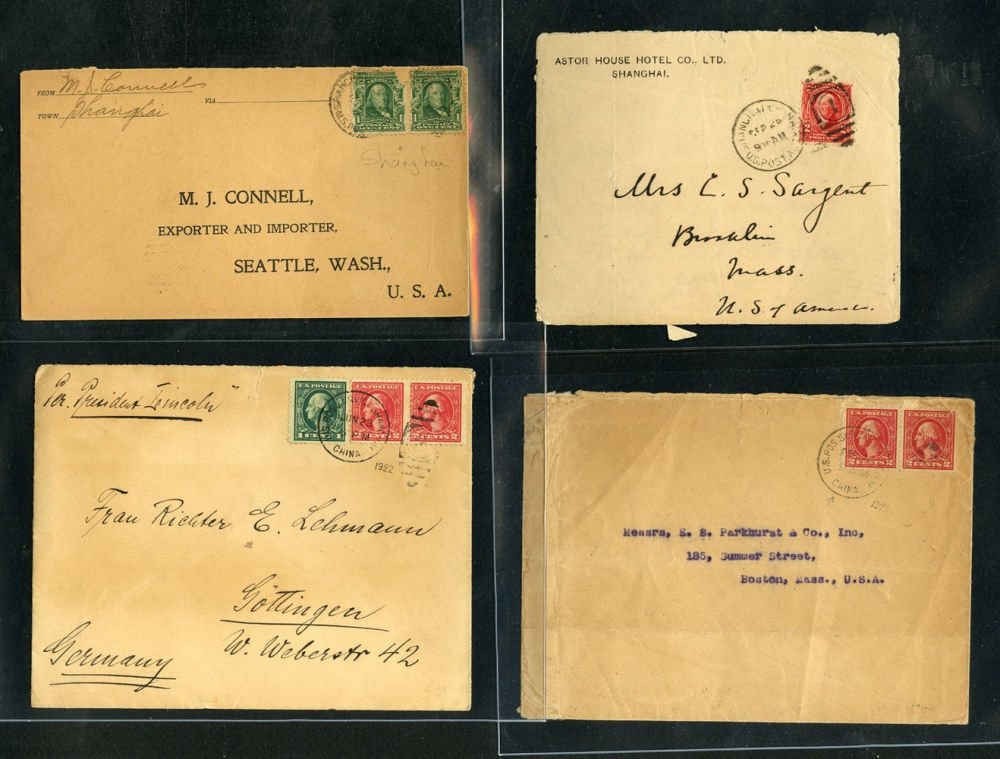 FROM M. J. Connell
VIA
TOWN Shanghai
Shanghai
M. J. CONNELL,
EXPORTER AND IMPORTER,
SEATTLE, WASH.,
U. S. A.
ASTOR HOUSE HOTEL CO., LTD.
SHANGHAI.
SEP 25
AM
U.S. POSTAL
Mrs E. S. Sargent
Brooklin
Mass.
U. S. of America.
Per "President Lincoln"
U.S. POSTAGE
1 CENT 1
U.S. POSTAGE
2 CENTS 2
U.S. POSTAGE
2 CENTS 2
CHINA
1922
Frau Richter E. Lehmann
Göttingen
W. Weberstr 42
Germany
2 CENTS 2
2 CENTS 2
U.S. POS
CHINA
Messrs, E. S. Parkhurst & Co., Inc,
185, Summer Street,
Boston, Mass., U.S.A.